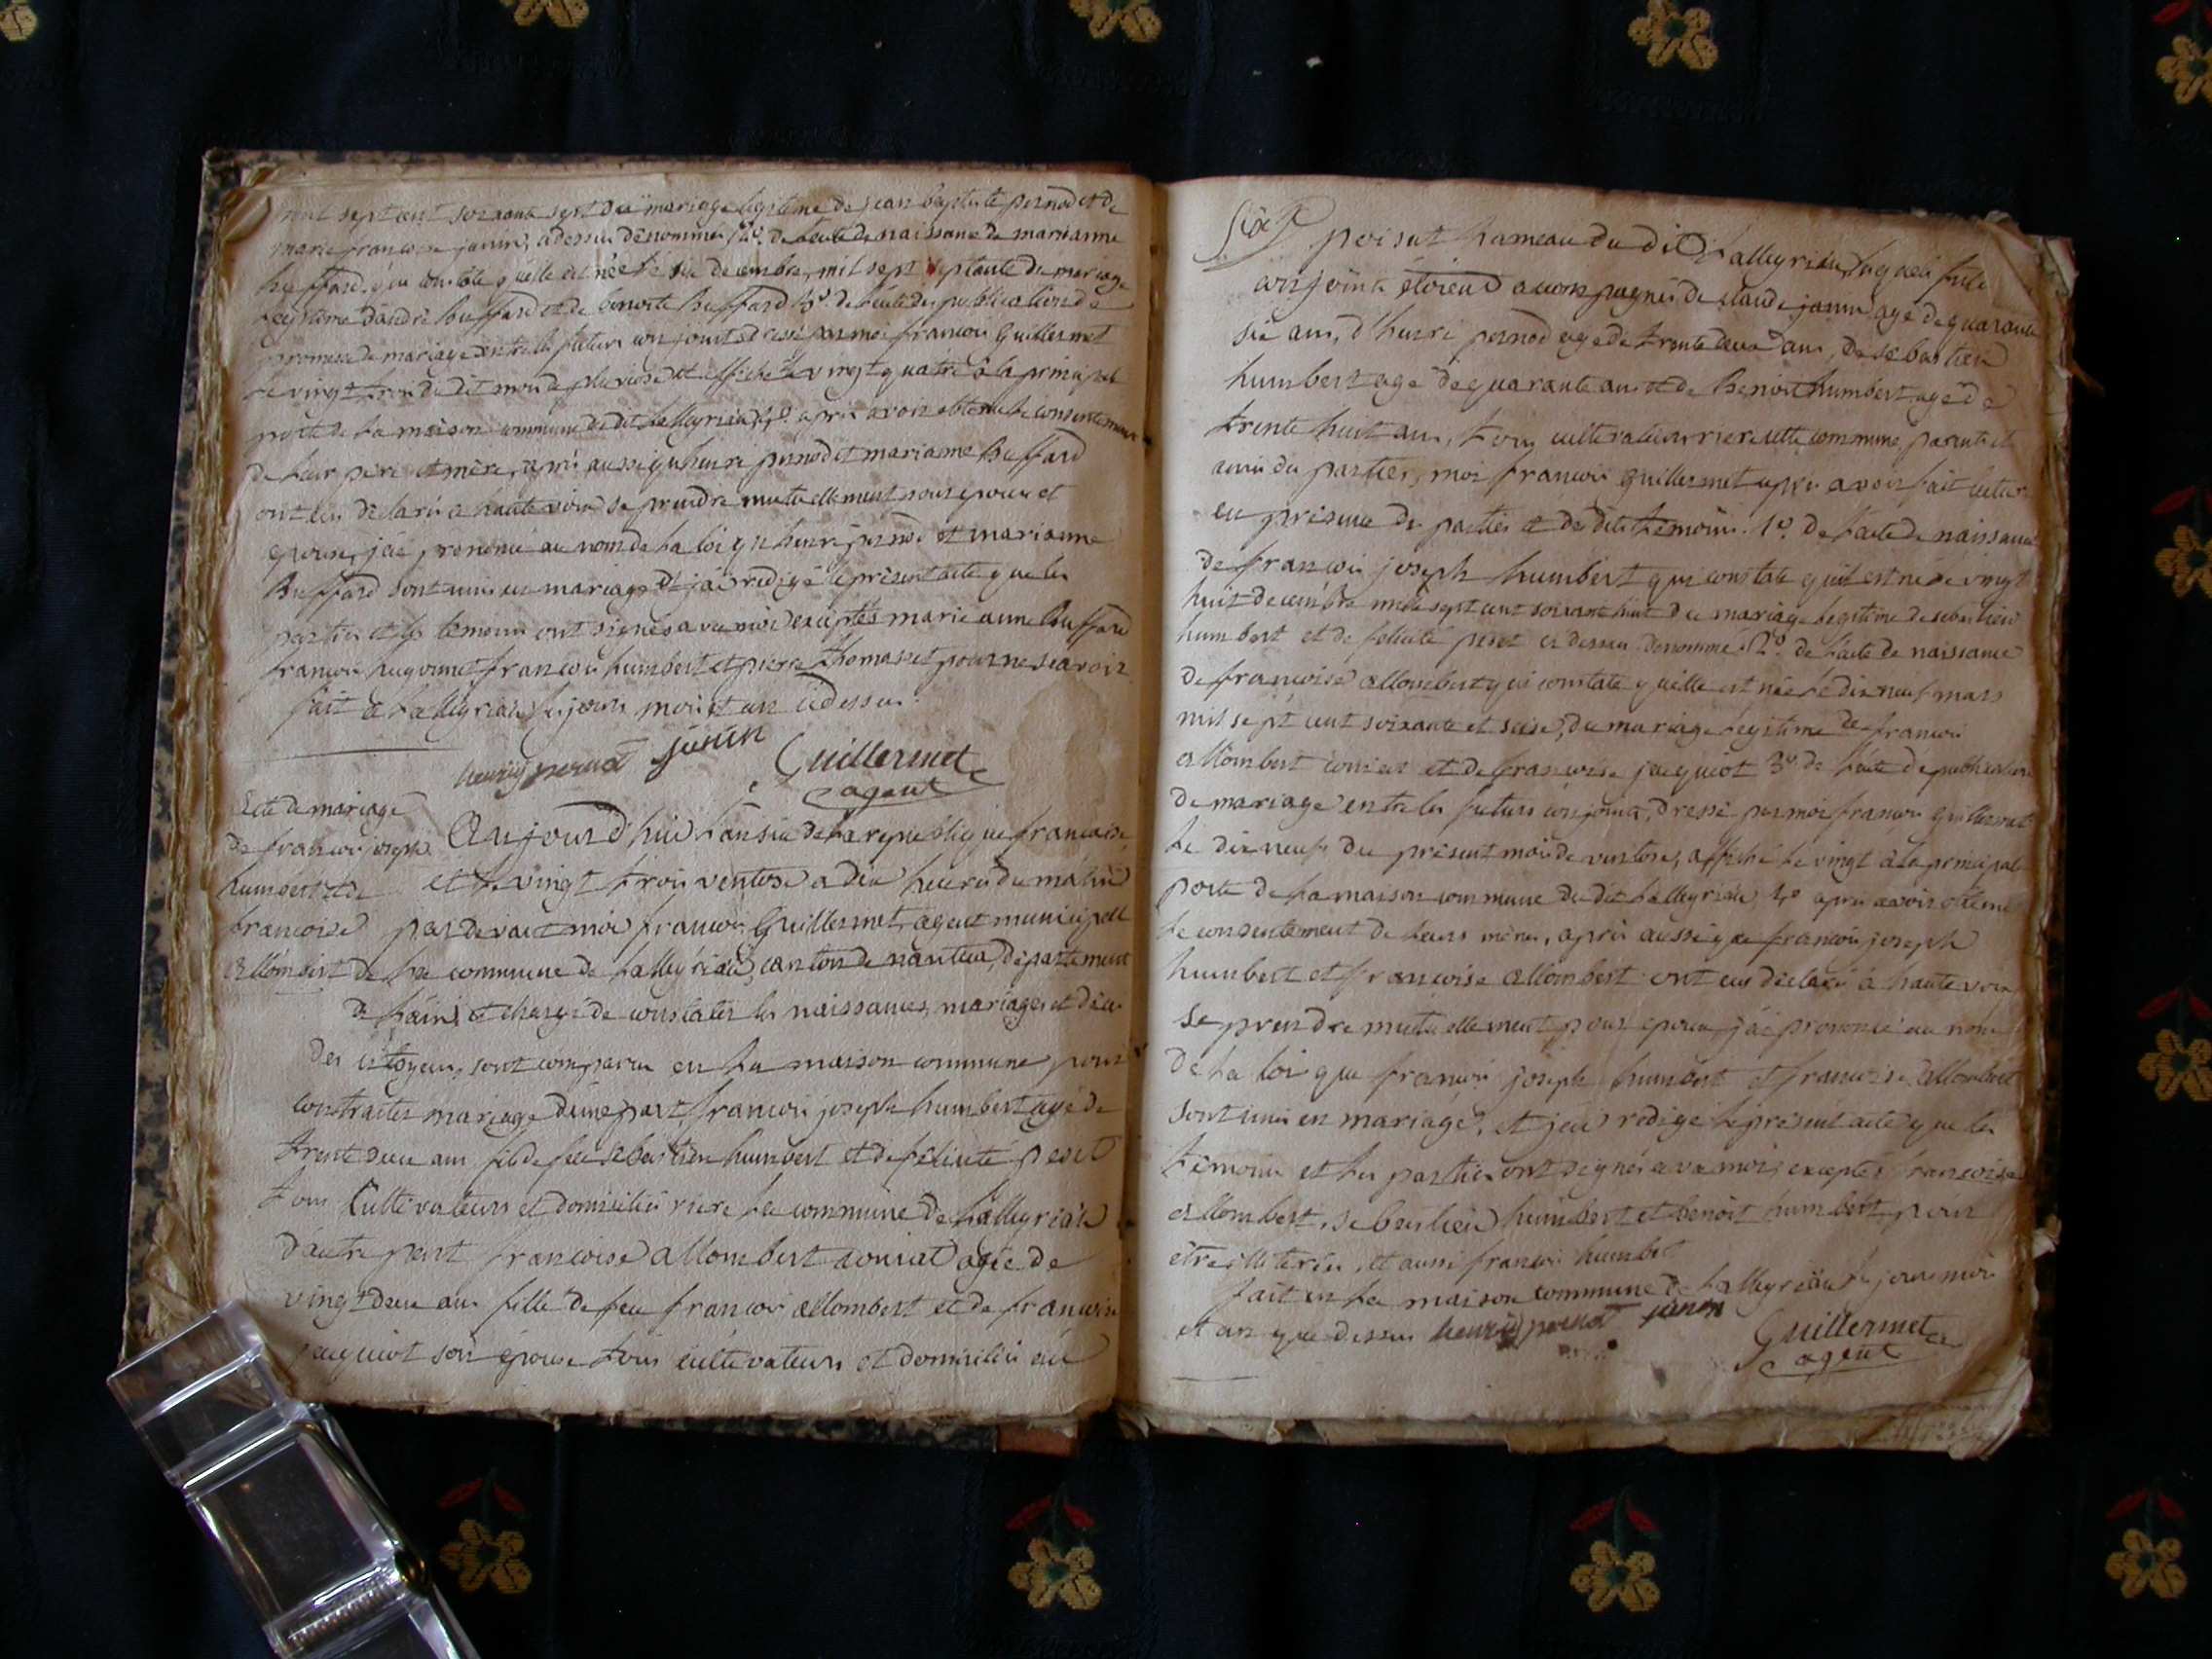 mil sept cent soixante sept du mariage legitime de jean baptiste pernod et de
marie francoise janin, adessus dénommés 2º. de lacte de naissance de marianne
Buffard, qui constate quelle est née le six decembre, mil sept septante du mariage
legitime d'andré Buffard et de benoite Buffard 3º. de lacte des publications de
promesse de mariage entre les futurs conjoints dressé par moi francois Guillermet
le vingt trois du dit mois de pluviose et affiché le vingt quatre à la principal
porte de la maison commune du dit Lalleyriat, 4º. après avoir obtenu le consentement
de leur père et mère, après aussi que henri pernod et marianne Buffard
ont eu déclaré à haute voix se prendre mutuellement pour epoux et
epouse, j'ai prononcé au nom de la loi que henri pernod et marianne
Buffard sont unis en mariage et j'ai redigé le présent acte que les
parties et les temoins ont signés avec moi exceptés marie anne Buffard
francois hugonnet francois humbert et pierre thomasset pour ne scavoir
fait à Lalleyriat les jours mois et an cidessus.
henry pernod janin Guillermet
agent
Acte de mariage
de francois joseph
humbert et de
francoise
allombert
Aujourd'hui l'an six de la republique francaise
et le vingt trois ventose a dix heures du matin
par devant moi francois Guillermet agent municipall
de la commune de Lalleyriat, canton de nantua, departement
de l'ain, et chargé de constater les naissances, mariages et déces
des citoyens, sont comparus en la maison commune pour
contracter mariage d'une part, francois joseph humbert agé de
trente deux ans fils de feu sebastien humbert et de felicité peset
tous Cultivateurs et domiciliés riere la commune de Lalleyriat
d'autre part francoise allombert agée de
vingt deux ans fille de feu francois allombert et de francoise
jacquiot son épouse tous cultivateurs et domiciliés au
Six
hameau du dit Lalleyriat, lequels futurs
conjoints étoient accompagnés de claude janin agé de quarante
six ans, d'henri pernod agé de trente deux ans, de sebastien
humbert agé de quarante ans et de Benoit humbert agé de
trente huit ans, tous cultivateurs riere cette commune, parents et
amis des parties, moi francois guillermet après avoir fait lecture
en présence des parties et des dits temoins. 1º. de l'acte de naissance
de francois joseph humbert qui constate qu'il est né le vingt
huit decembre mille sept cent soixante huit du mariage legitime de sebastien
humbert et de felicité peset ci dessus denommés 2º. de l'acte de naissance
de francoise allombert qui constate quelle est née le dix neuf mars
mil sept cent soixante et seise, du mariage legitime de francois
allombert et de francoise jacquiot 3º de l'acte de publication
de mariage entre les futurs conjoints, dressé par moi francois guillermet
le dix neuf du présent mois de ventose, affiché le vingt à la principal
porte de la maison commune du dit Lalleyriat 4º après avoir obtenu
le consentement de leurs mères, après aussi que francois joseph
humbert et francoise allombert ont eu déclaré à haute voix
se prendre mutuellement pour epoux, j'ai prononcé au nom
de la loi que francois joseph humbert et francoise allombert
sont unis en mariage, et j'ai redigé le présent acte que les
temoins et les parties ont signés avec moi, exceptés francoise
allombert, sebastien humbert et benoit humbert, pour
être illeterés, et aussi francois humbert
fait en la maison commune de Lalleyriat les jour mois
et an que dessus henry pernod janin Guillermet
agent